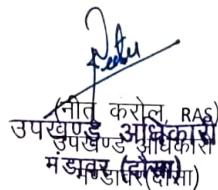 (नीतु करोल, RAS)
उपखण्ड अधिकारी
उपखण्ड अधिकारी
मंडावर (दौसा)
मण्डावर (दौसा)